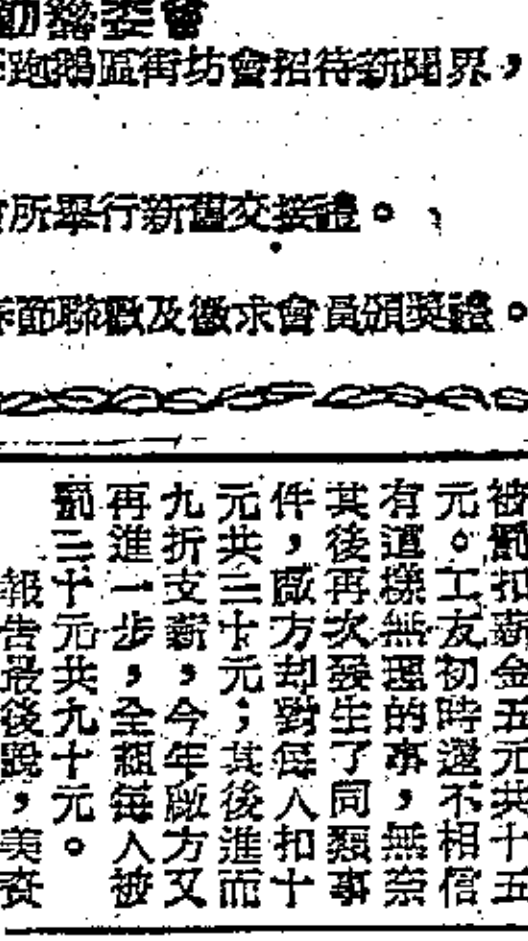 勷發委會
跑鵝區街坊會招待新聞界，
所舉行新舊交接禮。
面聯歡及徵求會員頒獎禮。
被罰扣薪金五元共十五
元。工友初時還不相信
有這樣無理的事，無奈
其後再次發生了同類事
件，廠方却對每人扣十
元共三十元；其後進而
九折支薪，今年廠方又
再進一步，全組每人被
罰三十元共九十元。
報告最後說，美資